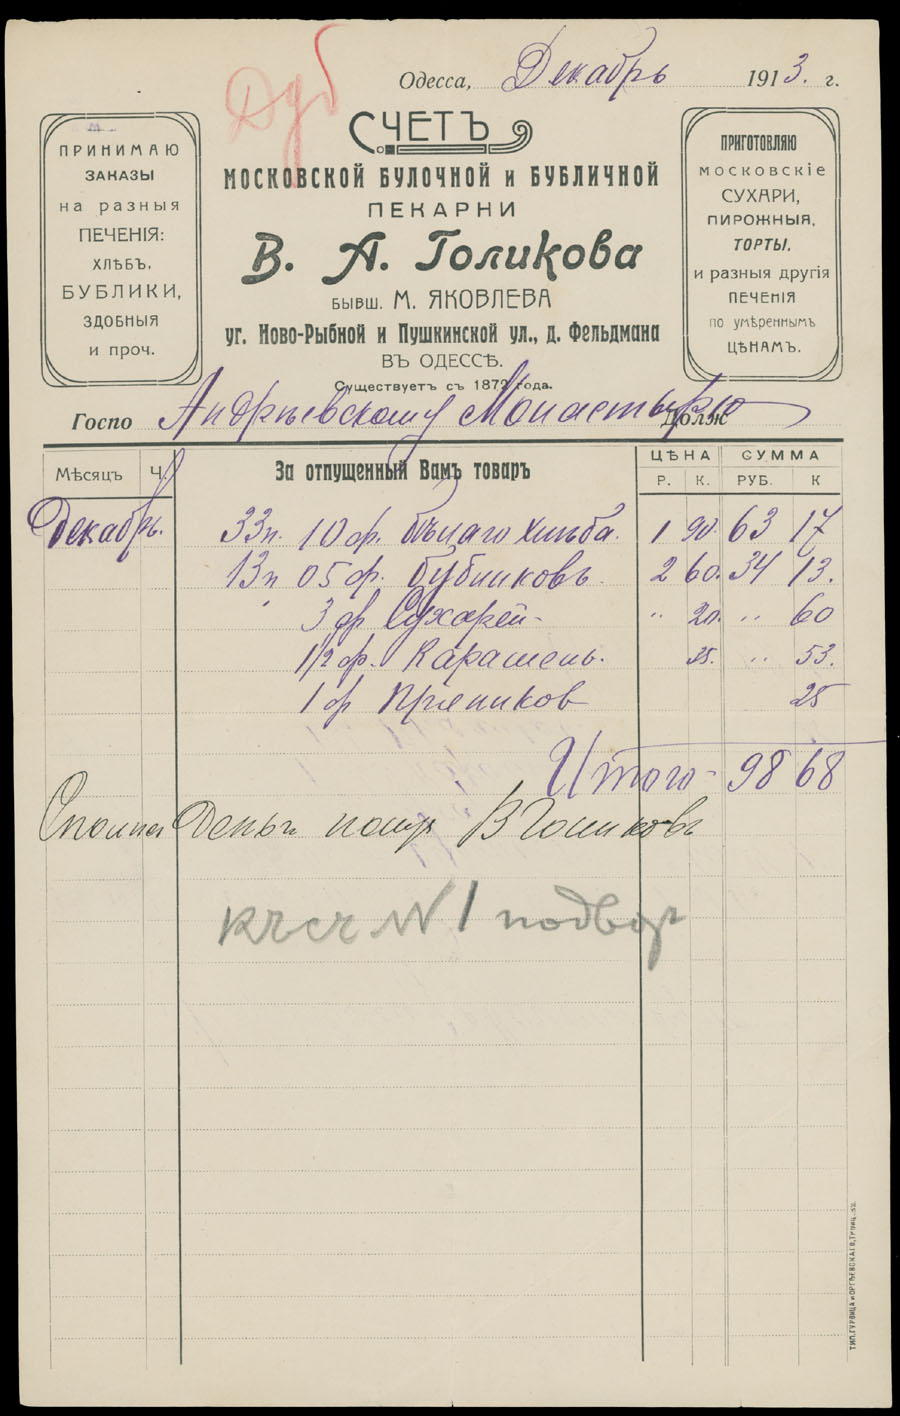 Дуб
Одесса, Декабрь 1913. г.
ПРИНИМАЮ
ЗАКАЗЫ
на разныя
ПЕЧЕНІЯ:
ХЛѢБЪ,
БУБЛИКИ,
ЗДОБНЫЯ
и проч.
СЧЕТЪ
МОСКОВСКОЙ БУЛОЧНОЙ и БУБЛИЧНОЙ
ПЕКАРНИ
В. А. Голикова
БЫВШ. М. ЯКОВЛЕВА
уг. Ново-Рыбной и Пушкинской ул., д. Фельдмана
ВЪ ОДЕССѢ.
Существуетъ съ 1872 года.
ПРИГОТОВЛЯЮ
МОСКОВСКІЕ
СУХАРИ,
ПИРОЖНЫЯ,
ТОРТЫ,
и разныя другія
ПЕЧЕНІЯ
по умѣреннымъ
ЦѢНАМЪ.
Госпо Андреевскому Монастырю Долж
Мѣсяцъ Ч. За отпущенный Вамъ товаръ ЦѢНА СУММА
Р. К. РУБ. К
Декабрь. 33п. 10 ф. бѣлаго хлѣба. 1 90. 63 17
13п 05 ф. Бубликовъ 2 60. 34 13.
3 ф Сухарей- " 20. " 60
1½ ф. Карашень. 35. " 53.
1 ф Пряников 25
Итого- 98 68
Сполна Деньги получ В Голиковъ
къ сч № 1 подвор
ТИП. ГУРВИЦА и ОРГѢЕВСКАГО, ТРОИЦ. 32.